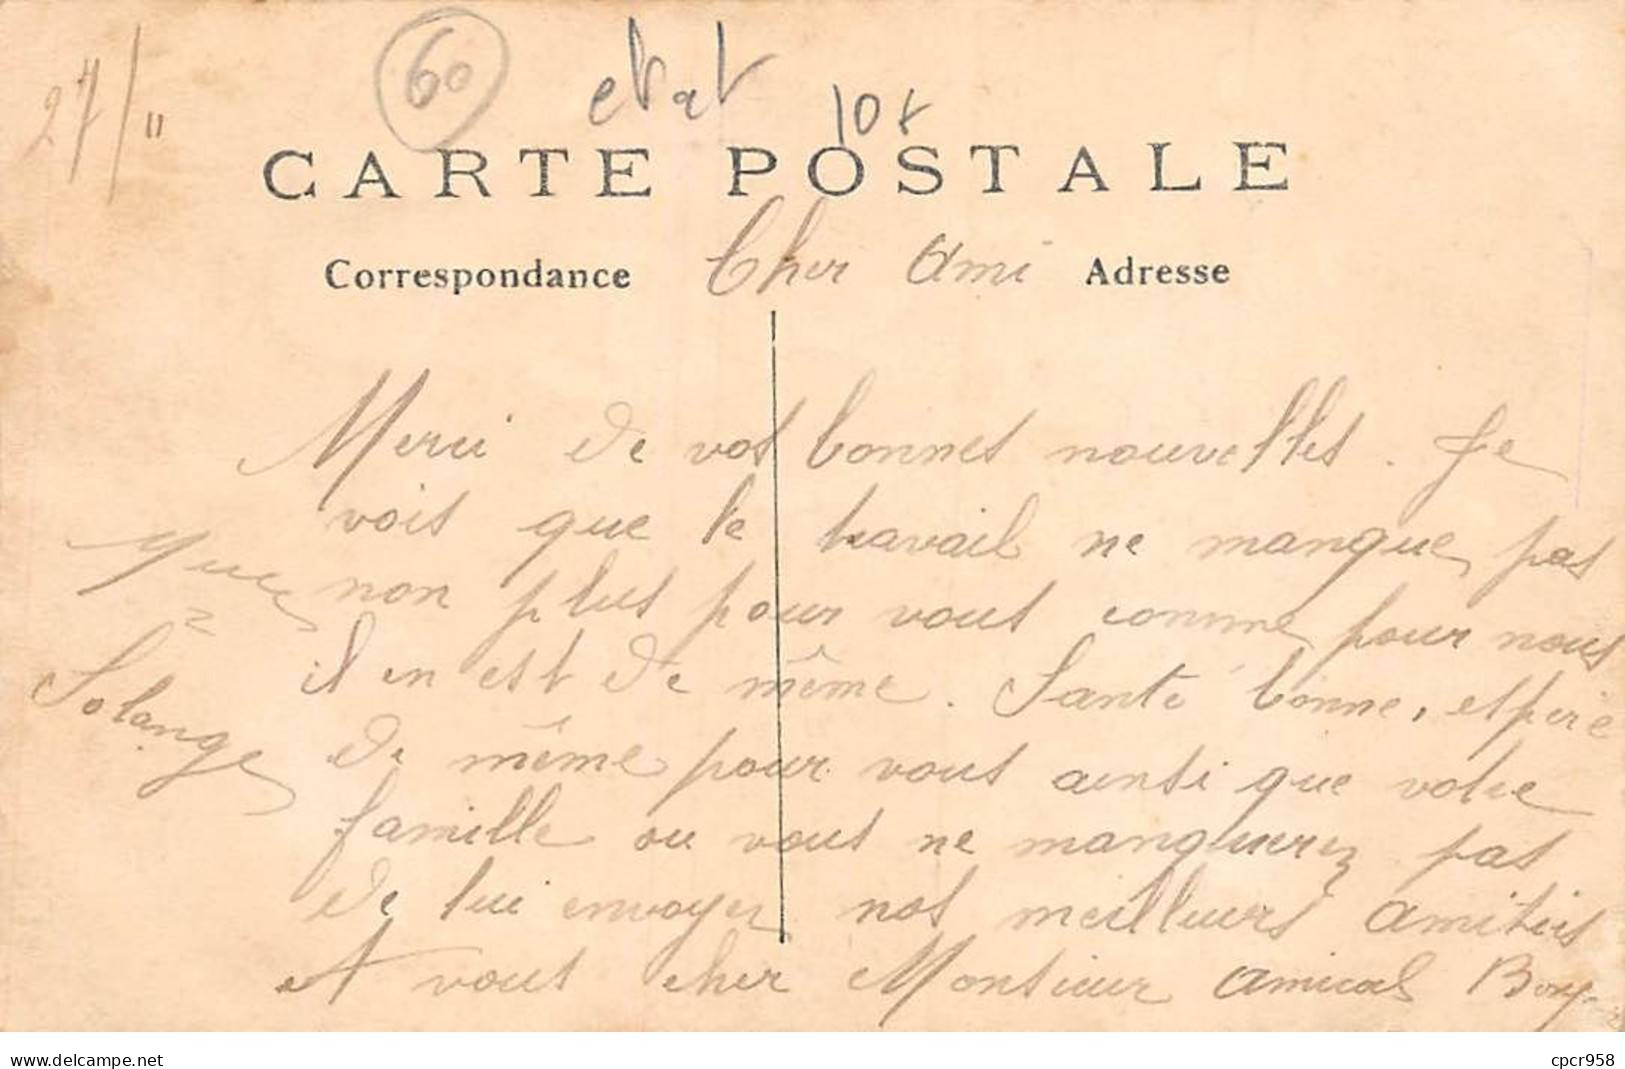 27/11
60
etat
10f
CARTE POSTALE
Correspondance
Cher Ami
Adresse
Merci de vos bonnes nouvelles. Je
vois que le travail ne manque pas
non plus pour vous comme pour nous
il en est de même. Santé bonne, espère
de même pour vous ainsi que votre
famille ou vous ne manquerez pas
de lui envoyer nos meilleurs amitiés
A vous cher Monsieur amical
Solange
www.delcampe.net
cpcr958